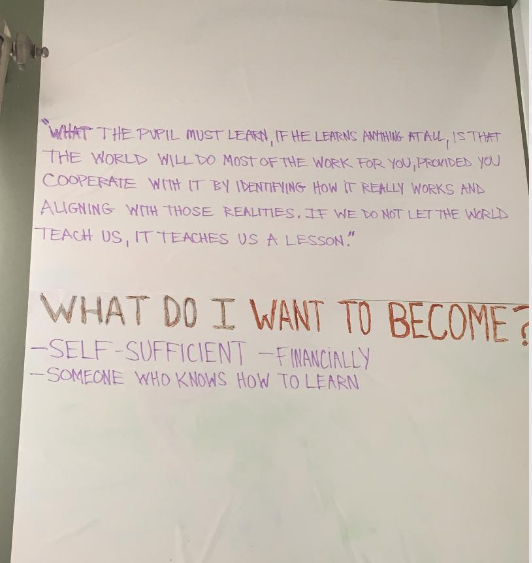 "WHAT THE PUPIL MUST LEARN, IF HE LEARNS ANYTHING AT ALL, IS THAT
THE WORLD WILL DO MOST OF THE WORK FOR YOU, PROVIDED YOU
COOPERATE WITH IT BY IDENTIFYING HOW IT REALLY WORKS AND
ALIGNING WITH THOSE REALITIES. IF WE DO NOT LET THE WORLD
TEACH US, IT TEACHES US A LESSON."
WHAT DO I WANT TO BECOME?
-SELF-SUFFICIENT -FINANCIALLY
-SOMEONE WHO KNOWS HOW TO LEARN